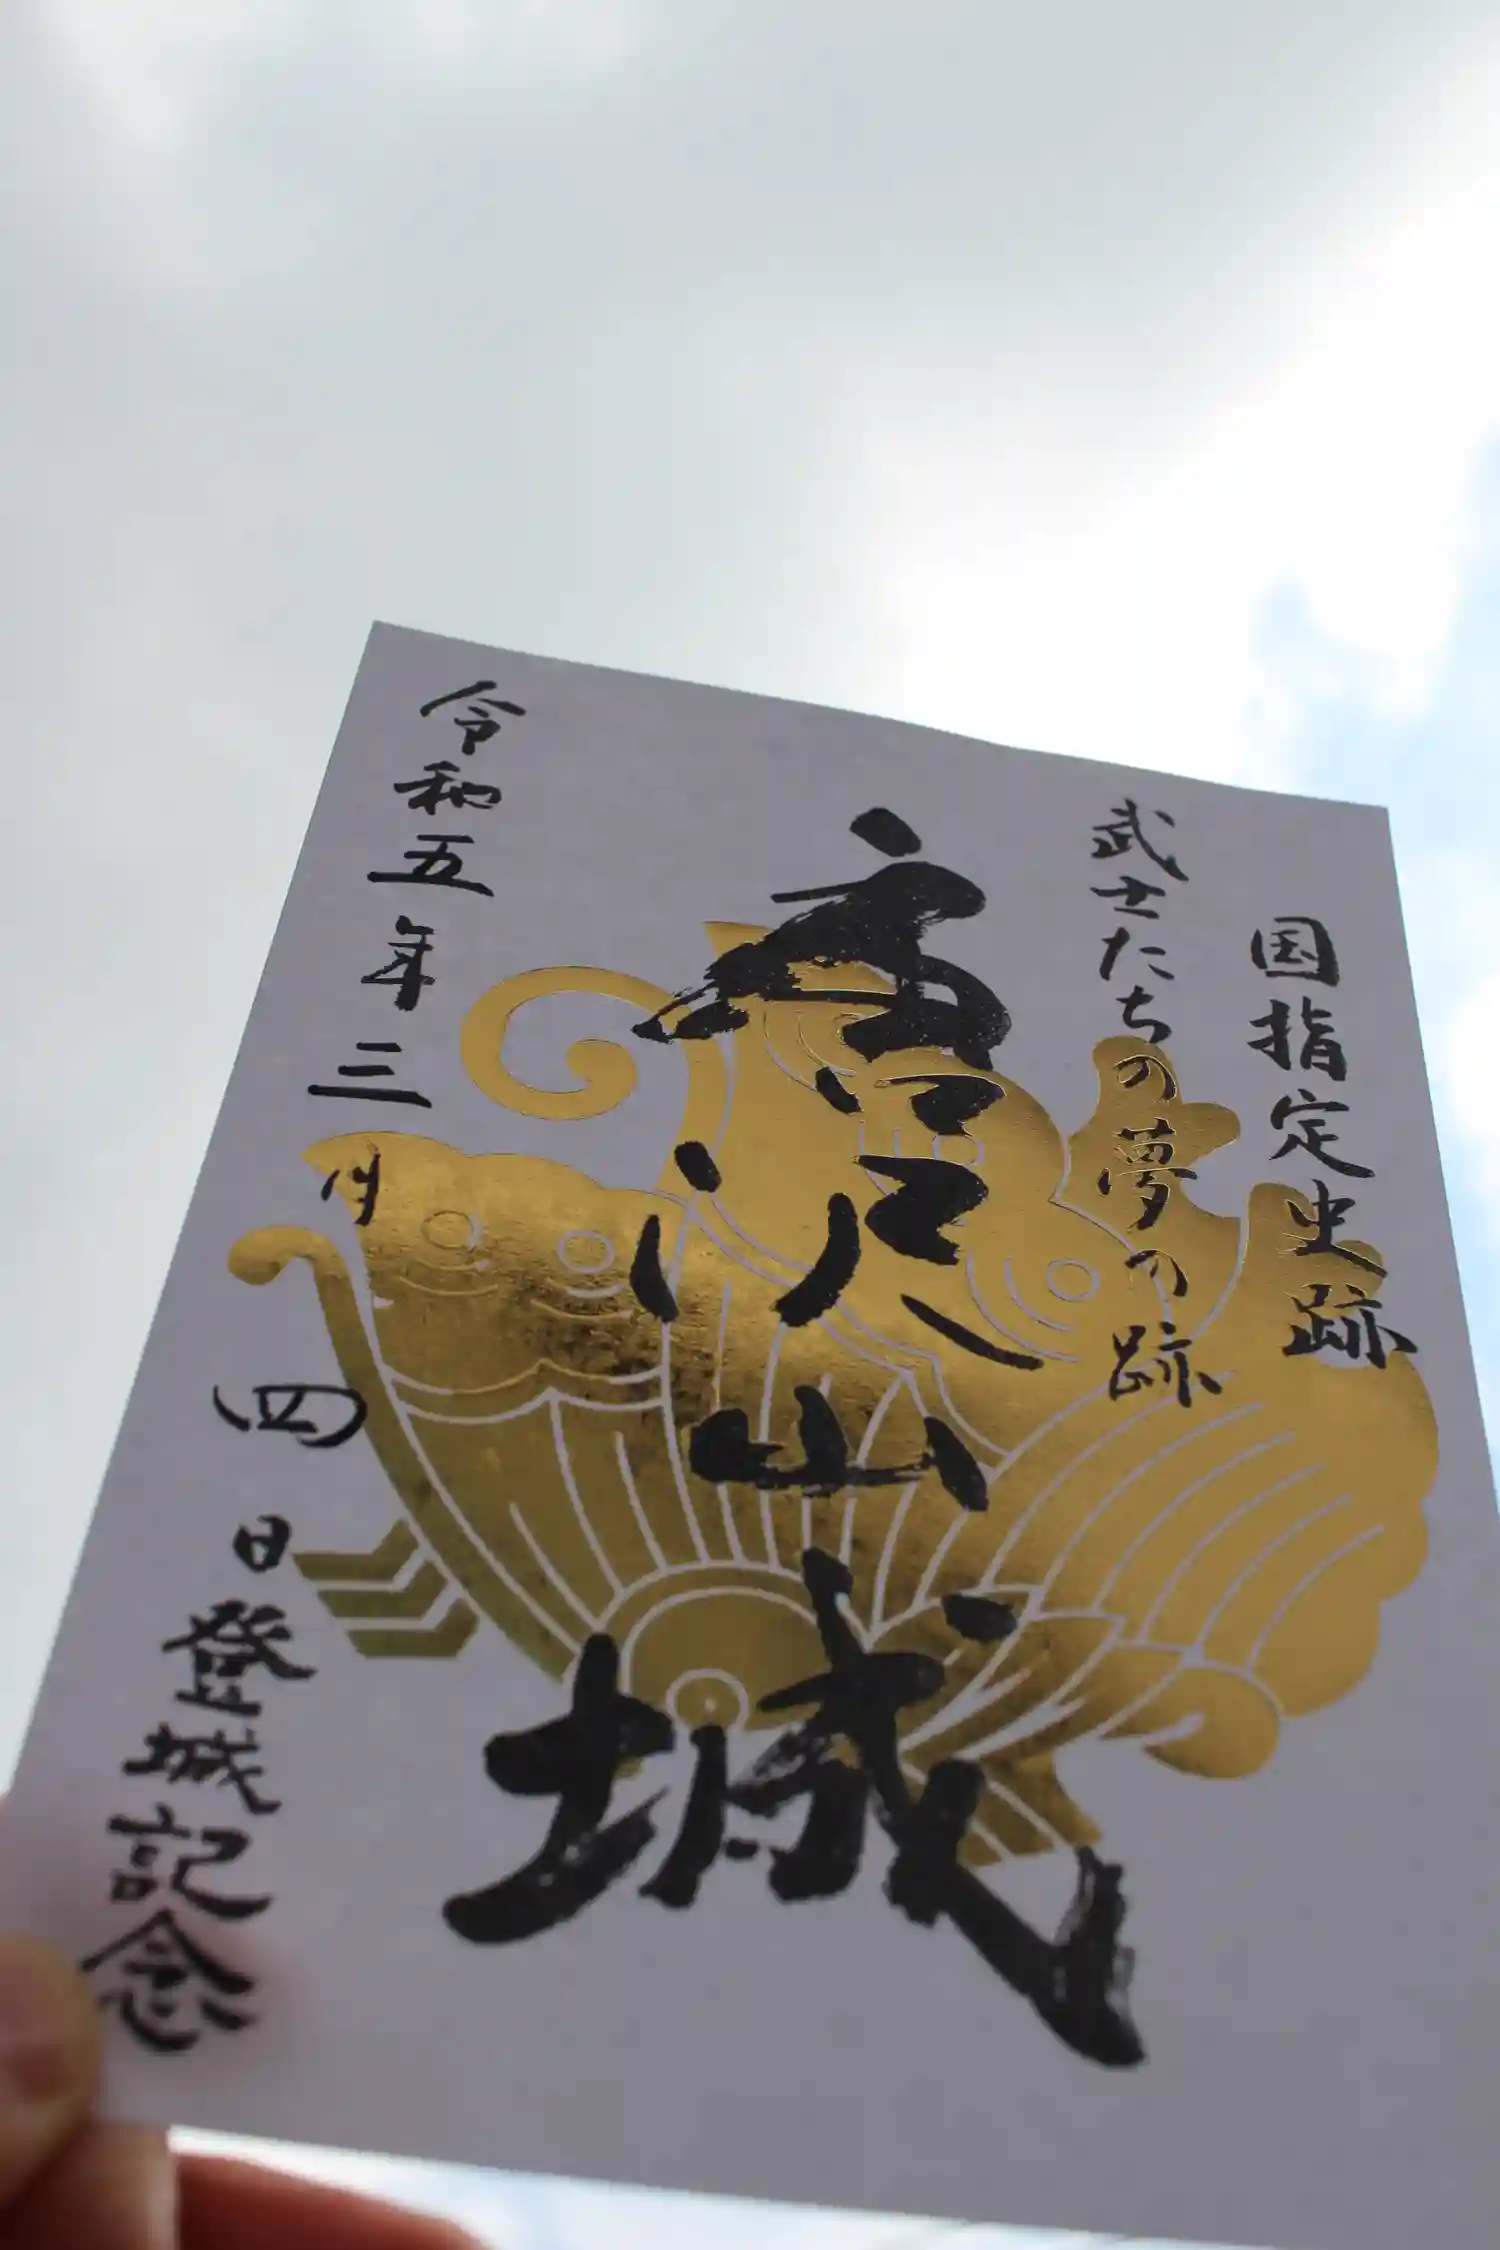 国指定史跡
武士たちの夢の跡
唐沢山城
令和五年三月四日登城記念